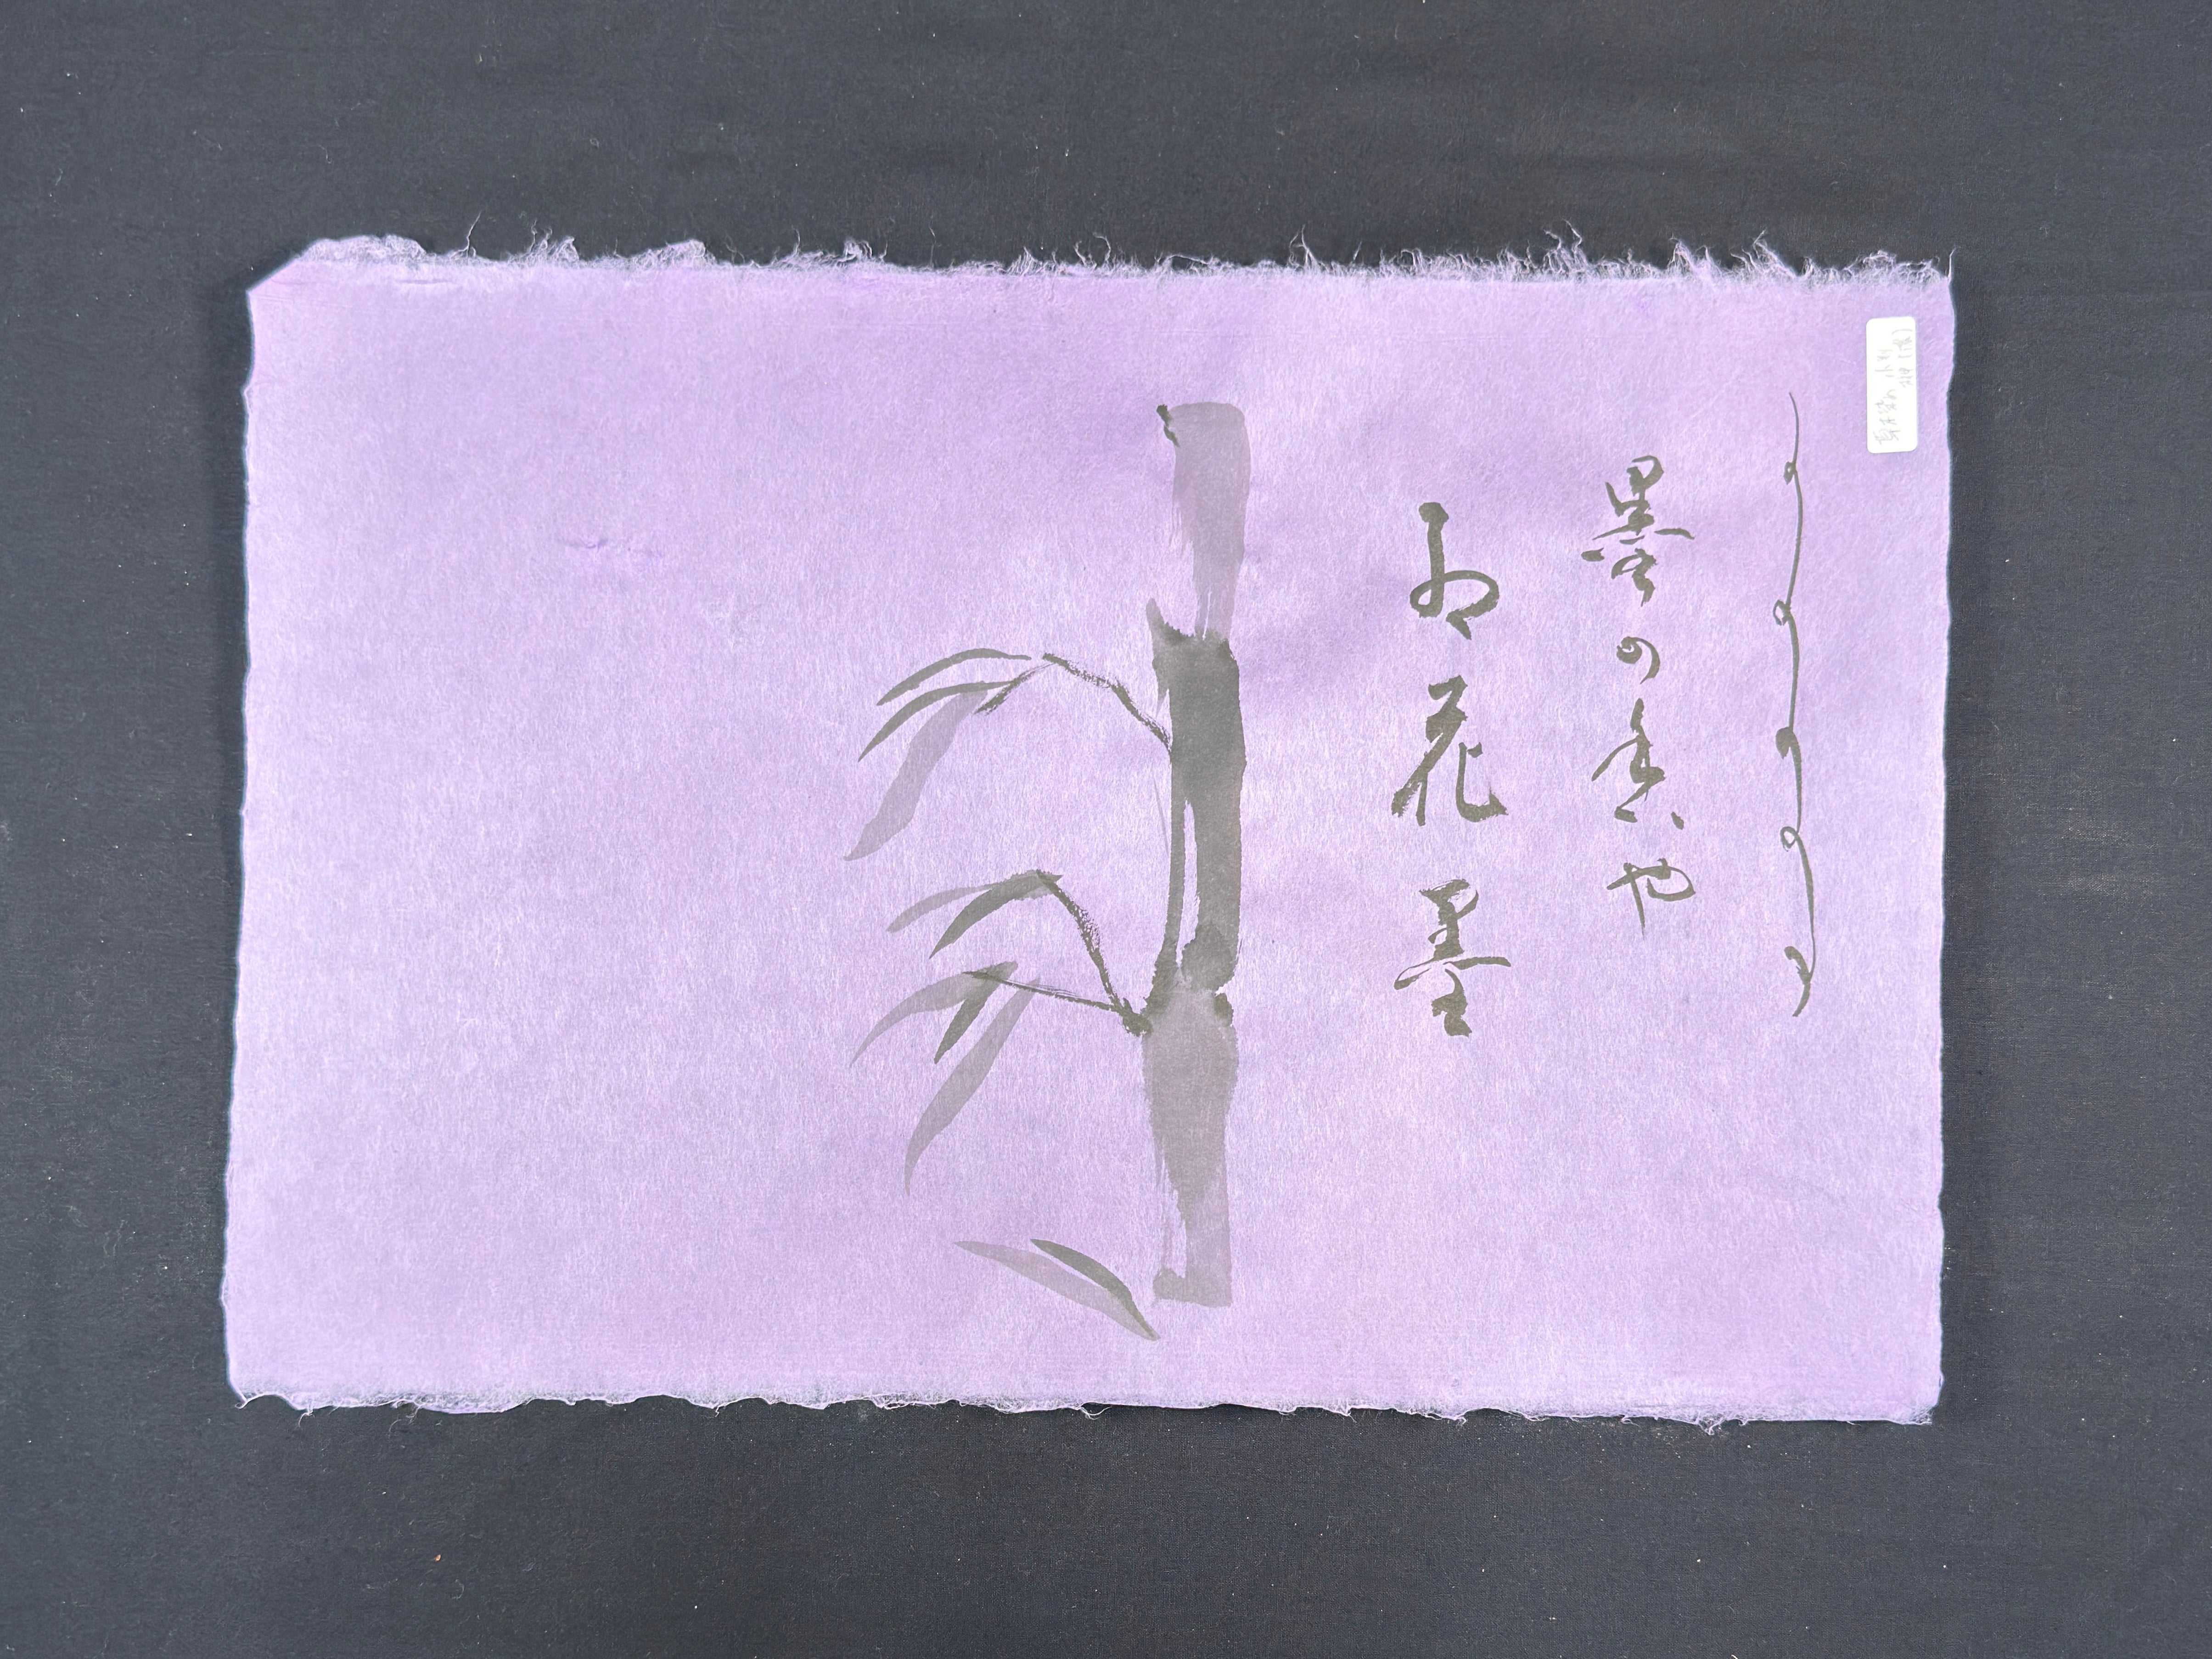 墨の香や
紅花墨